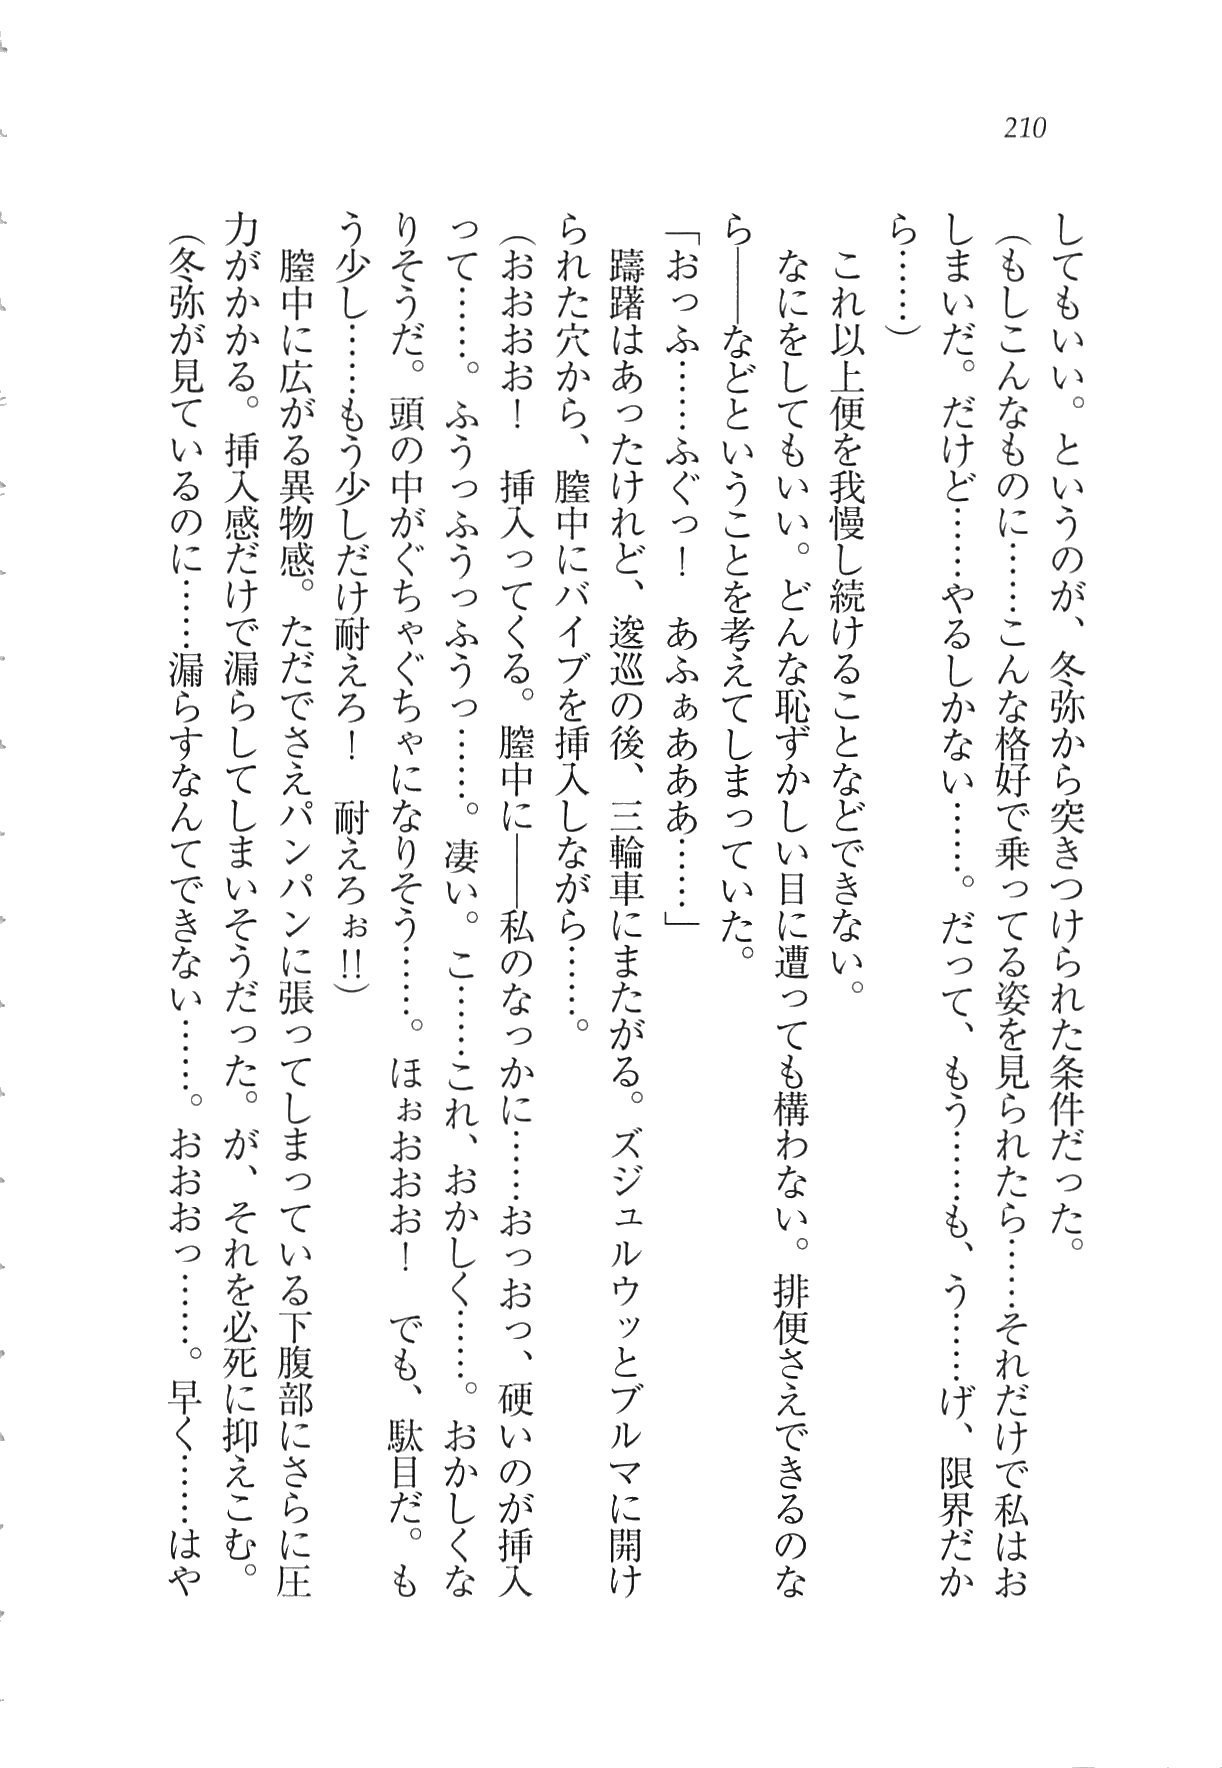 210
してもいい。というのが、冬弥から突きつけられた条件だった。
（もしこんなものに……こんな格好で乗ってる姿を見られたら……それだけで私はお
しまいだ。だけど……やるしかない……。だって、もう……も、う……げ、限界だか
ら……）
これ以上便を我慢し続けることなどできない。
なにをしてもいい。どんな恥ずかしい目に遭っても構わない。排便さえできるのな
ら――などということを考えてしまっていた。
「おっふ……ふぐっ！　あふぁあああ……」
躊躇はあったけれど、逡巡の後、三輪車にまたがる。ズジュルウッとブルマに開け
られた穴から、膣中にバイブを挿入しながら……。
（おおおお！　挿入ってくる。膣中に――私のなっかに……おっおっ、硬いのが挿入
って……。ふうっふうっふうっ……。凄い。こ……これ、おかしく……。おかしくな
りそうだ。頭の中がぐちゃぐちゃになりそう……。ほぉおおお！　でも、駄目だ。も
う少し……もう少しだけ耐えろ！　耐えろぉ!!）
膣中に広がる異物感。ただでさえパンパンに張ってしまっている下腹部にさらに圧
力がかかる。挿入感だけで漏らしてしまいそうだった。が、それを必死に抑えこむ。
（冬弥が見ているのに……漏らすなんてできない……。おおおっ……。早く……はや